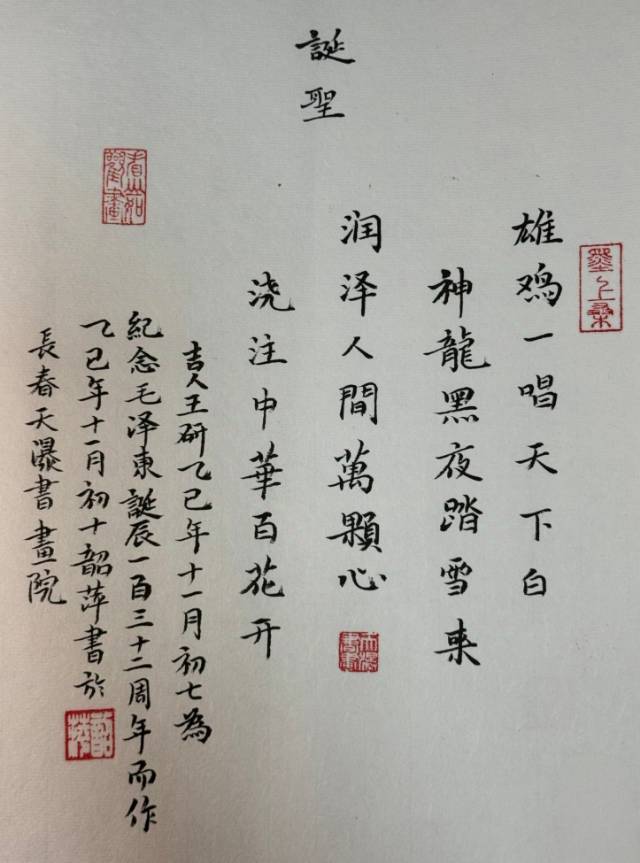 誕聖
雄鸡一唱天下白
神龍黑夜踏雪来
润泽人間萬顆心
浇注中華百花开
吉人王研乙巳年十一月初七為
紀念毛泽東誕辰一百三十二周年而作
乙巳年十一月初十韶萍書於
長春天瀑書畫院
墨上桑
韶萍